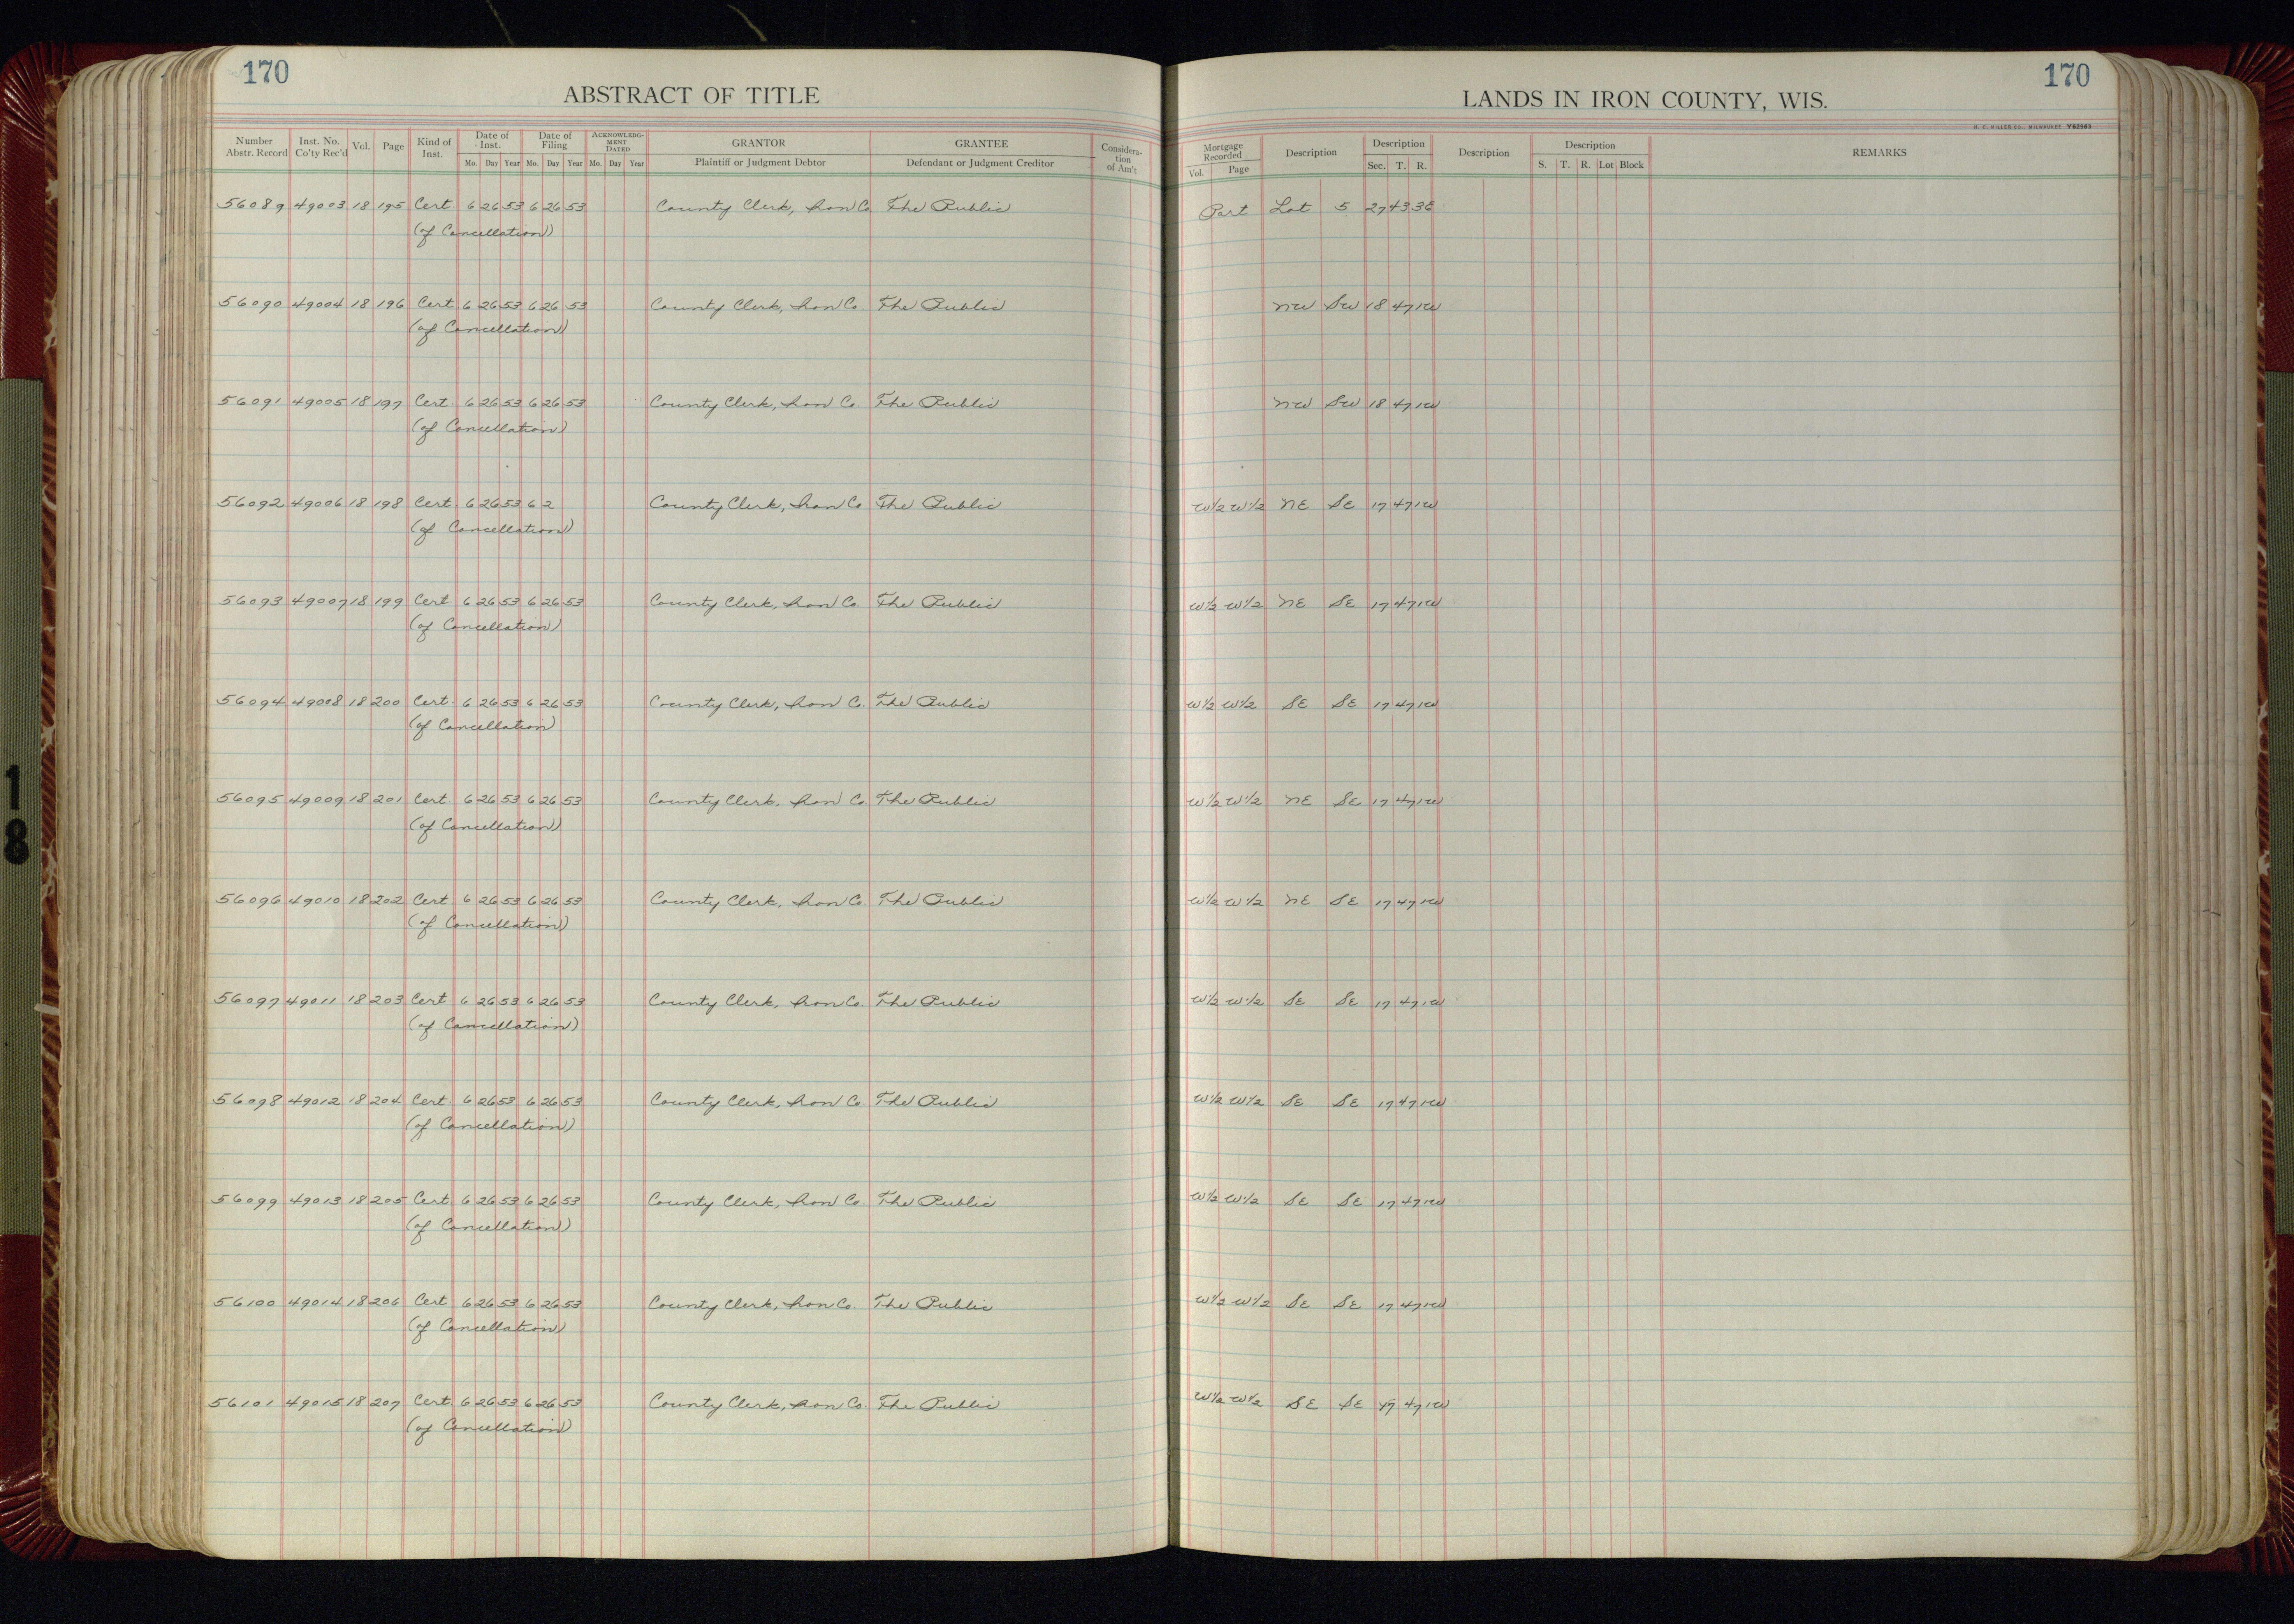 170
ABSTRACT OF TITLE
Number Abstr. Record Inst. No. Co'ty Rec'd Vol. Page Kind of Inst. Date of Inst. Mo. Day Year Date of Filing Mo. Day Year ACKNOWLEDGMENT DATED Mo. Day Year GRANTOR Plaintiff or Judgment Debtor GRANTEE Defendant or Judgment Creditor Consideration of Am't
170
LANDS IN IRON COUNTY, WIS.
H. C. MILLER CO., MILWAUKEE Y62963
Mortgage Recorded Vol. Page Description Description Sec. T. R. Description Description S. T. R. Lot Block REMARKS
56089 49003 18 195 Cert. 6 26 53 6 26 53 County Clerk, Iron Co. The Public Part Lot 5 27 43 3E
(of Cancellation)
56090 49004 18 196 Cert 6 26 53 6 26 53 County Clerk, Iron Co. The Public NW SW 18 47 1W
(of Cancellation)
56091 49005 18 197 Cert. 6 26 53 6 26 53 County Clerk, Iron Co. The Public NW SW 18 47 1W
(of Cancellation)
56092 49006 18 198 Cert 6 26 53 6 2 County Clerk, Iron Co The Public W1/2 W1/2 NE SE 17 47 1W
(of Cancellation)
56093 49007 18 199 Cert 6 26 53 6 26 53 County Clerk, Iron Co The Public W1/2 W1/2 NE SE 17 47 1W
(of Cancellation)
56094 49008 18 200 Cert. 6 26 53 6 26 53 County Clerk, Iron Co. The Public W1/2 W1/2 SE SE 17 47 1W
(of Cancellation)
56095 49009 18 201 Cert 6 26 53 6 26 53 County Clerk, Iron Co. The Public W1/2 W1/2 NE SE 17 47 1W
(of Cancellation)
56096 49010 18 202 Cert. 6 26 53 6 26 53 County Clerk, Iron Co. The Public W1/2 W1/2 NE SE 17 47 1W
(of Cancellation)
56097 49011 18 203 Cert 6 26 53 6 26 53 County Clerk, Iron Co. The Public W1/2 W1/2 SE SE 17 47 1W
(of Cancellation)
56098 49012 18 204 Cert 6 26 53 6 26 53 County Clerk, Iron Co. The Public W1/2 W1/2 SE SE 17 47 1W
(of Cancellation)
56099 49013 18 205 Cert 6 26 53 6 26 53 County Clerk, Iron Co. The Public W1/2 W1/2 SE SE 17 47 1W
(of Cancellation)
56100 49014 18 206 Cert 6 26 53 6 26 53 County Clerk, Iron Co. The Public W1/2 W1/2 SE SE 17 47 1W
(of Cancellation)
56101 49015 18 207 Cert 6 26 53 6 26 53 County Clerk, Iron Co. The Public W1/2 W1/2 SE SE 17 47 1W
(of Cancellation)
18